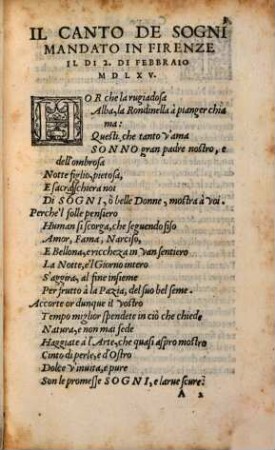 IL CANTO DE SOGNI
MANDATO IN FIRENZE
IL DI 2. DI FEBBRAIO
MDLXV.
HOR che la rugiadosa
Alba, la Rondinella à pianger chia
ma:
Questi, che tanto v'ama
SONNO gran padre nostro, e
dell'ombrosa
Notte figlio, pietosa,
E sacra schiera noi
Di SOGNI, ò belle Donne, mostra à voi.
Perche'l folle pensiero
Human si scorga, che seguendo fiso
Amor, Fama, Narciso,
E Bellona, e ricchezza in van sentiero
La Notte, e'l Giorno intero
S'aggira, al fine insieme
Per frutto à la Pazia, del suo bel seme.
Accorte or dunque il vostro
Tempo miglior spendete in ciò che chiede
Natura, e non mai fede
Haggiate à l'Arte, che quasi aspro mostro
Cinto di perle, e d'Ostro
Dolce v'inuita, e pure
Son le promesse SOGNI, e larue scure.
A 2